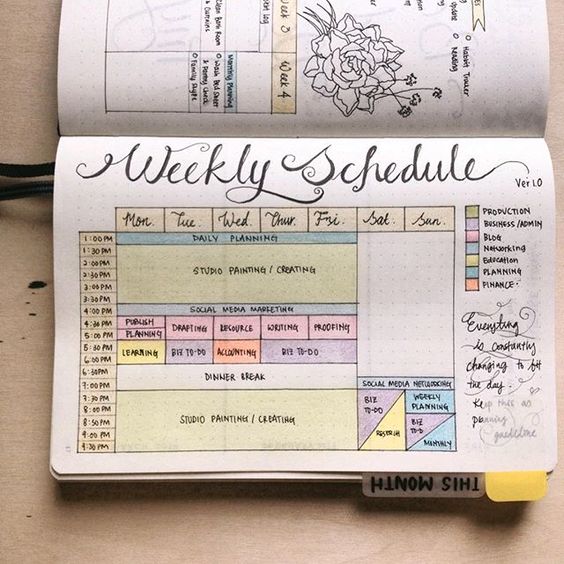 Week 3
Week 4
& Curtains
Clean Bath Room
Wash Bed Sheet
& Pantry Check
Family Skype
Monthly Planning
Update
Habit Tracker
Reading
Weekly Schedule
Ver 1.0
Mon. Tue. Wed. Thur. Fri. Sat. Sun.
1:00 PM DAILY PLANNING
1:30 PM
2:00 PM
2:30 PM STUDIO PAINTING / CREATING
3:00 PM
3:30 PM
4:00 PM SOCIAL MEDIA MARKETING
4:30 PM PUBLISH DRAFTING RESOURCE WRITING PROOFING
5:00 PM PLANNING
5:30 PM LEARNING BIZ TO-DO ACCOUNTING BIZ TO-DO
6:00 PM
6:30 PM DINNER BREAK
7:00 PM SOCIAL MEDIA NETWORKING
7:30 PM BIZ TO-DO WEEKLY PLANNING
8:00 PM STUDIO PAINTING / CREATING
8:30 PM RESEARCH BIZ TO-D
9:00 PM MONTHLY
9:30 PM
PRODUCTION
BUSINESS/ADMIN
BLOG
Networking
Education
PLANNING
FINANCE
Everything
is constantly
changing to bit
the day.
Keep this as
planning
guideline
THIS MONTH